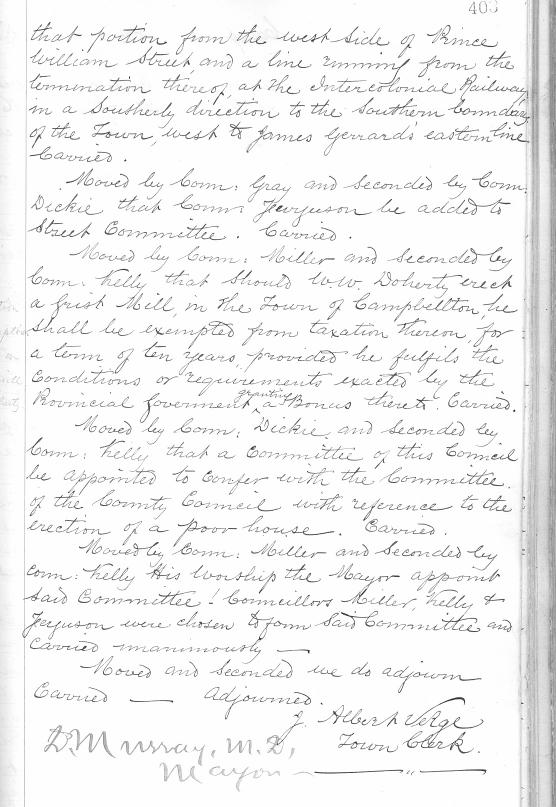 403
that portion from the west side of Prince
William Street and a line running from the
termination thereof, at the Intercolonial Railway,
in a Southerly direction to the Southern boundary
of the Town, west to James Gerrard's eastern line
Carried.
Moved by Coun: Gray and seconded by Coun:
Dickie that Coun: Ferguson be added to
Street Committee. Carried.
Moved by Coun: Miller and seconded by
Coun: Kelly that should W.W. Doherty erect
a Grist Mill, in the Town of Campbellton, he
shall be exempted from taxation thereon, for
a term of ten years, provided he fulfils the
Conditions or requirements exacted by the
Provincial Goverment granting a Bonus thereto. Carried.
Moved by Coun: Dickie and seconded by
Coun: Kelly that a Committee of this Council
be appointed to confer with the Committee
of the County Council with reference to the
erection of a poor house. Carried.
Moved by Coun: Miller and seconded by
Coun: Kelly His Worship the Mayor appoint
said Committee! Councillors Miller, Kelly &
Ferguson were chosen to form said Committee and
Carried unanimously —
Moved and seconded we do adjourn
Carried — Adjourned.
J. Albert Verge
Town Clerk.
D. Murray, M.D,
Mayor